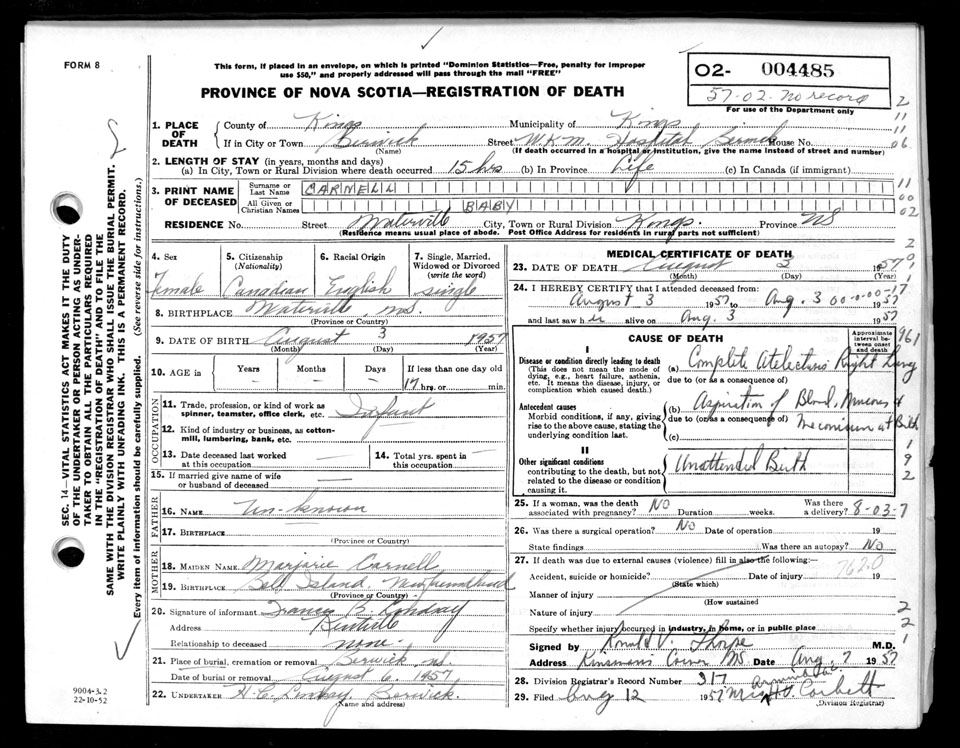 FORM 8
This form, if placed in an envelope, on which is printed "Dominion Statistics—Free, penalty for improper
use $50," and properly addressed will pass through the mail "FREE"
PROVINCE OF NOVA SCOTIA—REGISTRATION OF DEATH
O2- 004485
57-02- no record
For use of the Department only
1. PLACE OF DEATH
County of Kings Municipality of Kings
If in City or Town Berwick Street W.K.M. Hospital Berwick House No.
(Name) (If death occurred in a hospital or institution, give the name instead of street and number)
2. LENGTH OF STAY (in years, months and days)
(a) In City, Town or Rural Division where death occurred 15 hrs (b) In Province Life (c) In Canada (if immigrant)
3. PRINT NAME OF DECEASED
Surname or Last Name CARNELL
All Given or Christian Names BABY
RESIDENCE No. Street Waterville City, Town or Rural Division Kings. Province NS
(Residence means usual place of abode. Post Office Address for residents in rural parts not sufficient)
4. Sex Female
5. Citizenship (Nationality) Canadian
6. Racial Origin English
7. Single, Married, Widowed or Divorced (write the word) single
8. BIRTHPLACE Waterville, N.S.
(Province or Country)
9. DATE OF BIRTH August 3 1957
(Month) (Day) (Year)
10. AGE in Years Months Days If less than one day old
— — — 17 hrs. or min.
OCCUPATION
11. Trade, profession, or kind of work as
spinner, teamster, office clerk, etc. Infant
12. Kind of industry or business, as cotton-
mill, lumbering, bank, etc.
13. Date deceased last worked
at this occupation —
14. Total yrs. spent in
this occupation —
15. If married give name of wife
or husband of deceased —
FATHER
16. NAME Un-known
17. BIRTHPLACE
(Province or Country)
MOTHER
18. MAIDEN NAME Marjorie Carnell
19. BIRTHPLACE Bell Island, Newfoundland
(Province or Country)
20. Signature of informant Frances B.
Address Kentville
Relationship to deceased none.
21. Place of burial, cremation or removal Berwick N.S.
Date of burial or removal August 6, 1957
22. UNDERTAKER H.C. Lindsay, Berwick.
(Name and address)
MEDICAL CERTIFICATE OF DEATH
23. DATE OF DEATH August 3 1957
(Month) (Day) (Year)
24. I HEREBY CERTIFY that I attended deceased from:
August 3 1957 to Aug. 3 1957
and last saw her alive on Aug. 3 1957
CAUSE OF DEATH
Approximate interval between onset and death
I
Disease or condition directly leading to death
(This does not mean the mode of
dying, e.g., heart failure, asthenia,
etc. It means the disease, injury, or
complication which caused death.)
(a) Complete Atelectasis Right Lung
due to (or as a consequence of)
Antecedent causes
Morbid conditions, if any, giving
rise to the above cause, stating the
underlying condition last.
(b) Aspiration of Blood, Mucous &
due to (or as a consequence of) Meconium at Birth
(c)
II
Other significant conditions
contributing to the death, but not
related to the disease or condition
causing it.
Unattended Birth
25. If a woman, was the death
associated with pregnancy? No Duration weeks. Was there
a delivery? 8-03-7
26. Was there a surgical operation? No Date of operation 19
State findings Was there an autopsy? No
27. If death was due to external causes (violence) fill in also the following:—
762.0
Accident, suicide or homicide? Date of injury 19
(State which)
Manner of injury
(How sustained
Nature of injury
Specify whether injury occurred in industry, in home, or in public place
Signed by Ronald V. Thorpe M.D.
Address Kinsmans Corner NS Date Aug. 7 1957
28. Division Registrar's Record Number 317
29. Filed Aug 12 1957 Corbett
(Division Registrar)
SEC. 14—VITAL STATISTICS ACT MAKES IT THE DUTY
OF THE UNDERTAKER OR PERSON ACTING AS UNDER-
TAKER TO OBTAIN ALL THE PARTICULARS REQUIRED
IN THE "REGISTRATION OF DEATH" AND TO FILE THE
SAME WITH THE DIVISION REGISTRAR WHO SHALL ISSUE THE BURIAL PERMIT.
WRITE PLAINLY WITH UNFADING INK. THIS IS A PERMANENT RECORD.
Every item of information should be carefully supplied. (See reverse side for instructions).
9004-3.2
22-10-52